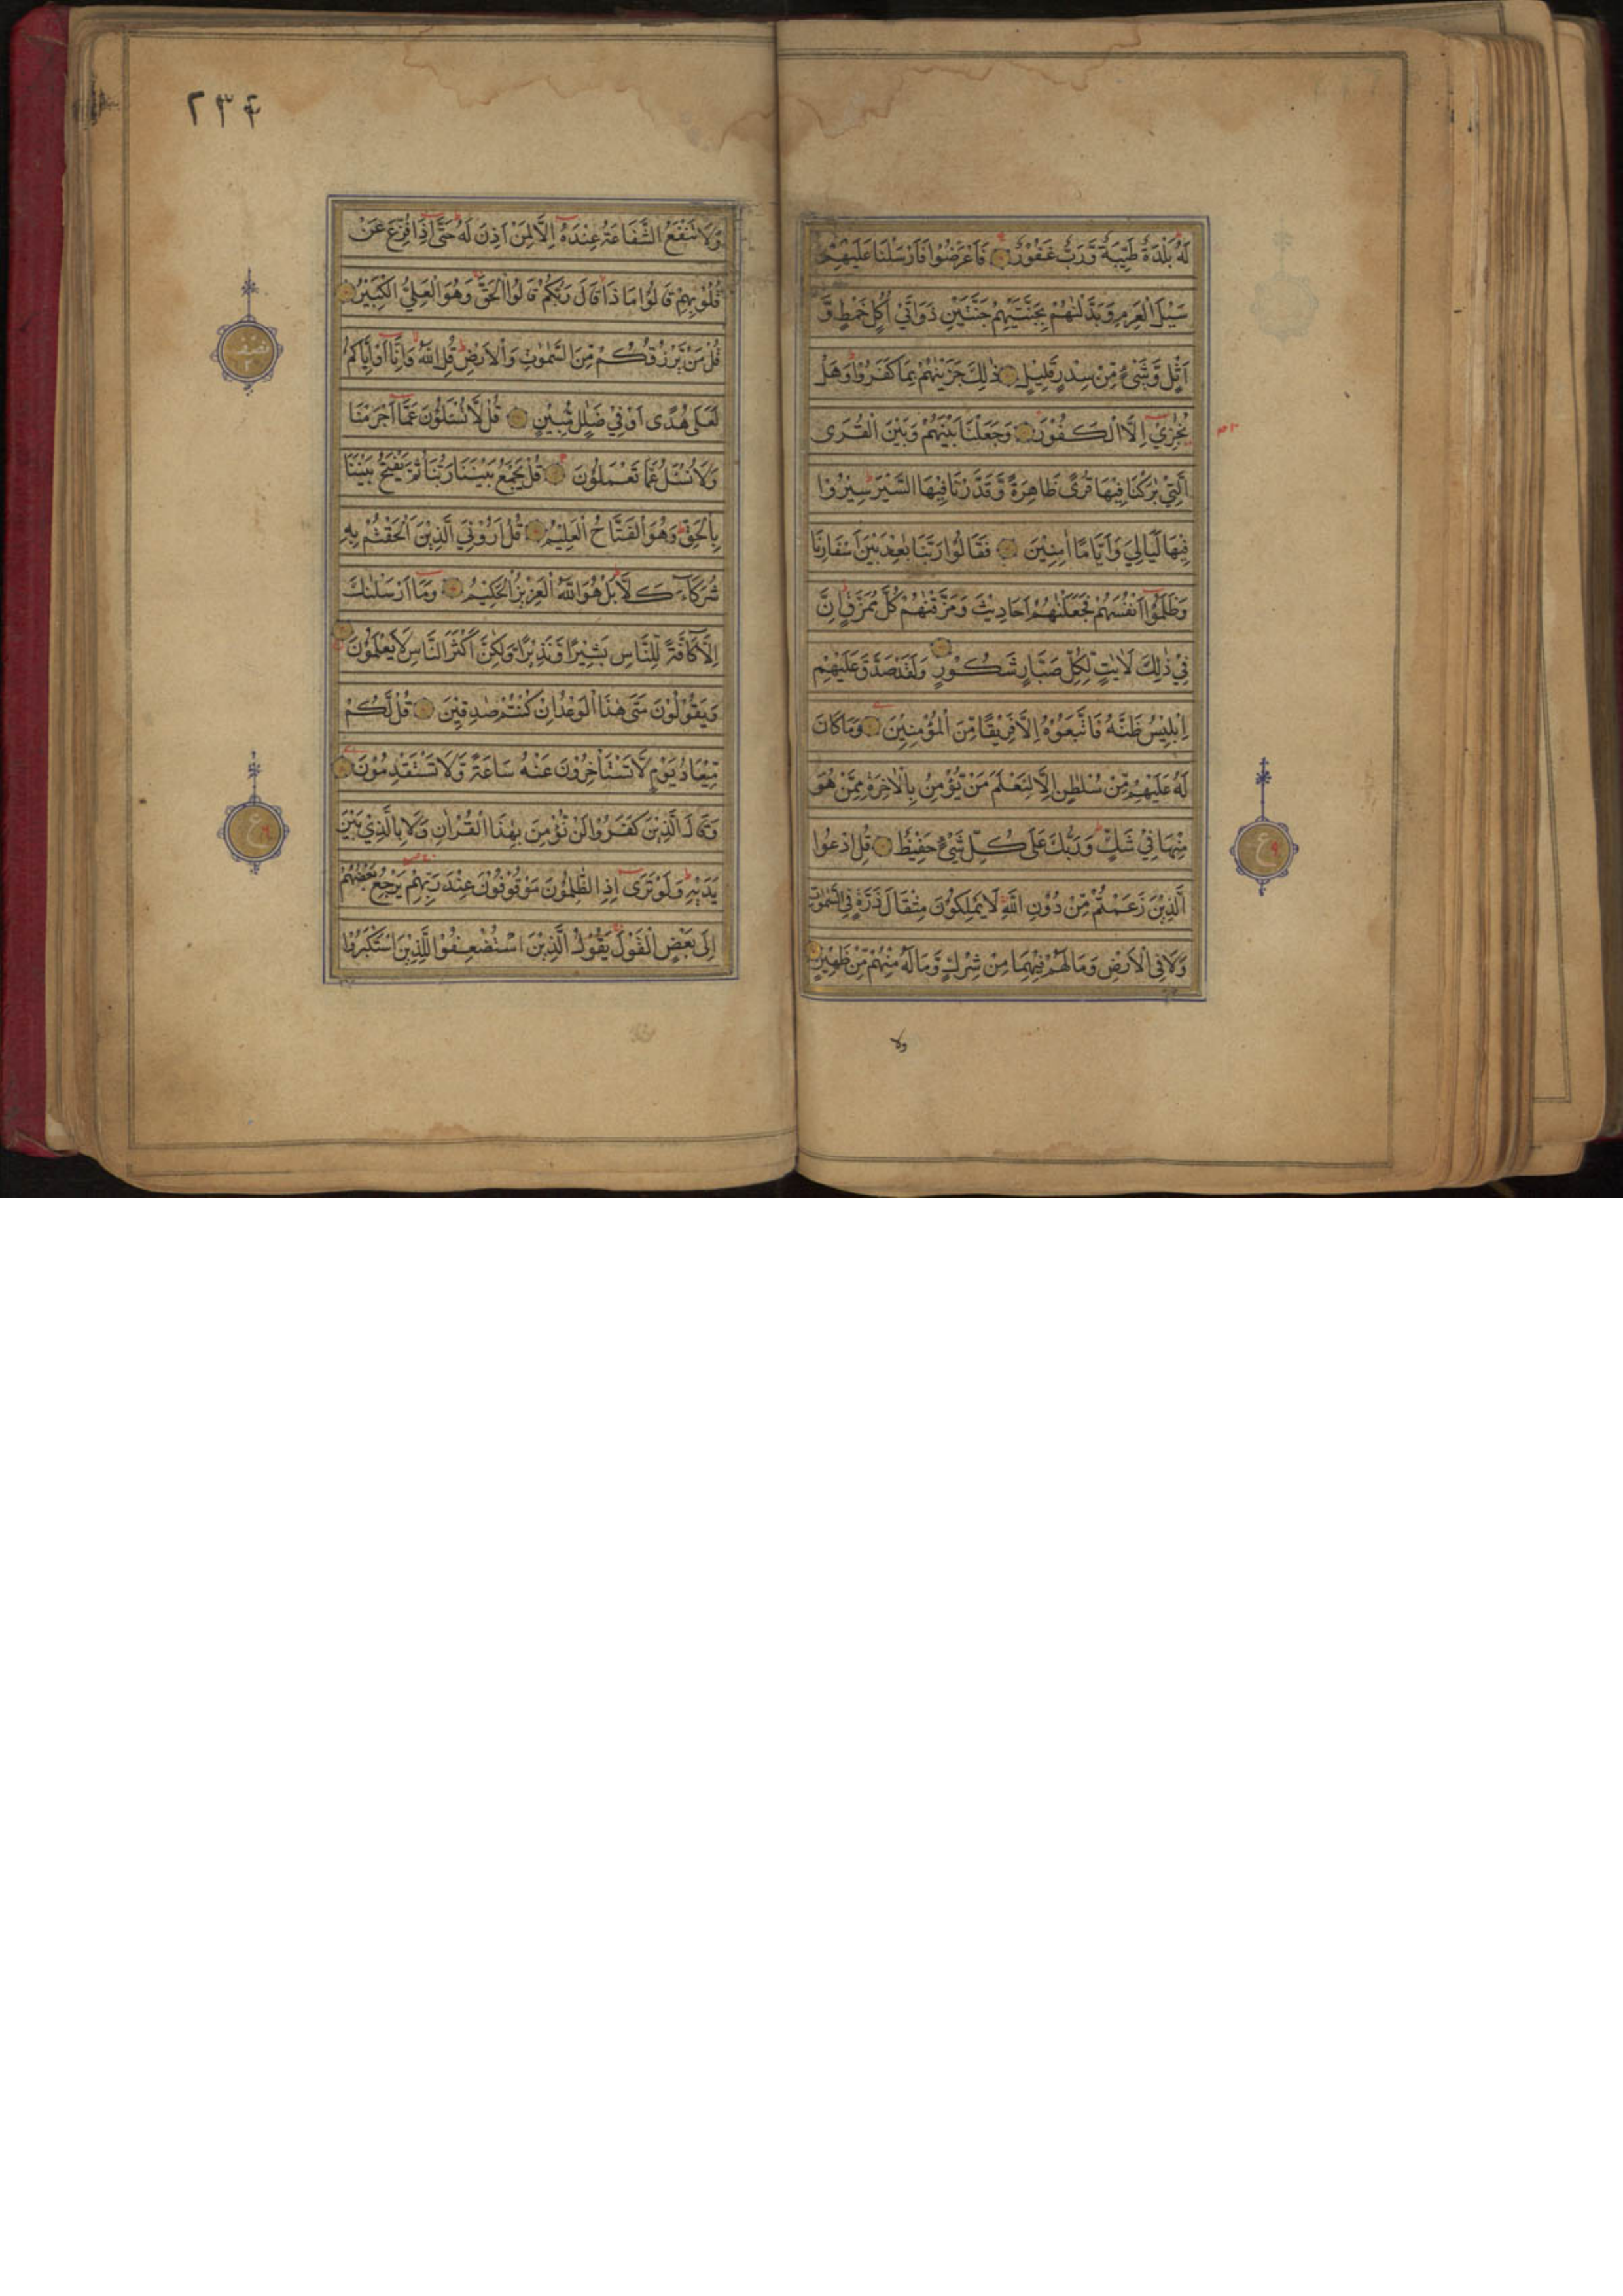 لَهُ بَلْدَةٌ طَيِّبَةٌ وَّرَبٌّ غَفُوْرٌ فَاَعْرَضُوْا فَاَرْسَلْنَا عَلَيْهِمْ
سَيْلَ الْعَرِمِ وَبَدَّلْنٰهُمْ بِجَنَّتَيْهِمْ جَنَّتَيْنِ ذَوَاتَيْ اُكُلٍ خَمْطٍ وَّ
اَثْلٍ وَّشَيْءٍ مِّنْ سِدْرٍ قَلِيْلٍ ذٰلِكَ جَزَيْنٰهُمْ بِمَا كَفَرُوْا وَهَلْ
نُجٰزِيْ اِلَّا الْكَفُوْرَ وَجَعَلْنَا بَيْنَهُمْ وَبَيْنَ الْقُرَى
الَّتِيْ بٰرَكْنَا فِيْهَا قُرًى ظَاهِرَةً وَّقَدَّرْنَا فِيْهَا السَّيْرَ سِيْرُوْا
فِيْهَا لَيَالِيَ وَاَيَّامًا اٰمِنِيْنَ فَقَالُوْا رَبَّنَا بٰعِدْ بَيْنَ اَسْفَارِنَا
وَظَلَمُوْا اَنْفُسَهُمْ فَجَعَلْنٰهُمْ اَحَادِيْثَ وَمَزَّقْنٰهُمْ كُلَّ مُمَزَّقٍ اِنَّ
فِيْ ذٰلِكَ لَاٰيٰتٍ لِّكُلِّ صَبَّارٍ شَكُوْرٍ وَلَقَدْ صَدَّقَ عَلَيْهِمْ
اِبْلِيْسُ ظَنَّهُ فَاتَّبَعُوْهُ اِلَّا فَرِيْقًا مِّنَ الْمُؤْمِنِيْنَ وَمَا كَانَ
لَهُ عَلَيْهِمْ مِّنْ سُلْطٰنٍ اِلَّا لِنَعْلَمَ مَنْ يُّؤْمِنُ بِالْاٰخِرَةِ مِمَّنْ هُوَ
مِنْهَا فِيْ شَكٍّ وَرَبُّكَ عَلٰى كُلِّ شَيْءٍ حَفِيْظٌ قُلِ ادْعُوا
الَّذِيْنَ زَعَمْتُمْ مِّنْ دُوْنِ اللّٰهِ لَا يَمْلِكُوْنَ مِثْقَالَ ذَرَّةٍ فِي السَّمٰوٰتِ
وَلَا فِي الْاَرْضِ وَمَا لَهُمْ فِيْهِمَا مِنْ شِرْكٍ وَّمَا لَهُ مِنْهُمْ مِّنْ ظَهِيْرٍ
ع
ولا
٢٣٤
وَلَا تَنْفَعُ الشَّفَاعَةُ عِنْدَهُ اِلَّا لِمَنْ اَذِنَ لَهُ حَتّٰى اِذَا فُزِّعَ عَنْ
قُلُوْبِهِمْ قَالُوْا مَاذَا قَالَ رَبُّكُمْ قَالُوا الْحَقَّ وَهُوَ الْعَلِيُّ الْكَبِيْرُ
قُلْ مَنْ يَّرْزُقُكُمْ مِّنَ السَّمٰوٰتِ وَالْاَرْضِ قُلِ اللّٰهُ وَاِنَّا اَوْ اِيَّاكُمْ
لَعَلٰى هُدًى اَوْ فِيْ ضَلٰلٍ مُّبِيْنٍ قُلْ لَّا تُسْئَلُوْنَ عَمَّا اَجْرَمْنَا
وَلَا نُسْئَلُ عَمَّا تَعْمَلُوْنَ قُلْ يَجْمَعُ بَيْنَنَا رَبُّنَا ثُمَّ يَفْتَحُ بَيْنَنَا
بِالْحَقِّ وَهُوَ الْفَتَّاحُ الْعَلِيْمُ قُلْ اَرُوْنِيَ الَّذِيْنَ اَلْحَقْتُمْ بِهِ
شُرَكَآءَ كَلَّا بَلْ هُوَ اللّٰهُ الْعَزِيْزُ الْحَكِيْمُ وَمَا اَرْسَلْنٰكَ
اِلَّا كَآفَّةً لِّلنَّاسِ بَشِيْرًا وَّنَذِيْرًا وَّلٰكِنَّ اَكْثَرَ النَّاسِ لَا يَعْلَمُوْنَ
وَيَقُوْلُوْنَ مَتٰى هٰذَا الْوَعْدُ اِنْ كُنْتُمْ صٰدِقِيْنَ قُلْ لَّكُمْ
مِّيْعَادُ يَوْمٍ لَّا تَسْتَاْخِرُوْنَ عَنْهُ سَاعَةً وَّلَا تَسْتَقْدِمُوْنَ
وَقَالَ الَّذِيْنَ كَفَرُوْا لَنْ نُّؤْمِنَ بِهٰذَا الْقُرْاٰنِ وَلَا بِالَّذِيْ بَيْنَ
يَدَيْهِ وَلَوْ تَرٰى اِذِ الظّٰلِمُوْنَ مَوْقُوْفُوْنَ عِنْدَ رَبِّهِمْ يَرْجِعُ بَعْضُهُمْ
اِلٰى بَعْضٍ الْقَوْلَ يَقُوْلُ الَّذِيْنَ اسْتُضْعِفُوْا لِلَّذِيْنَ اسْتَكْبَرُوْا
نصف
ع